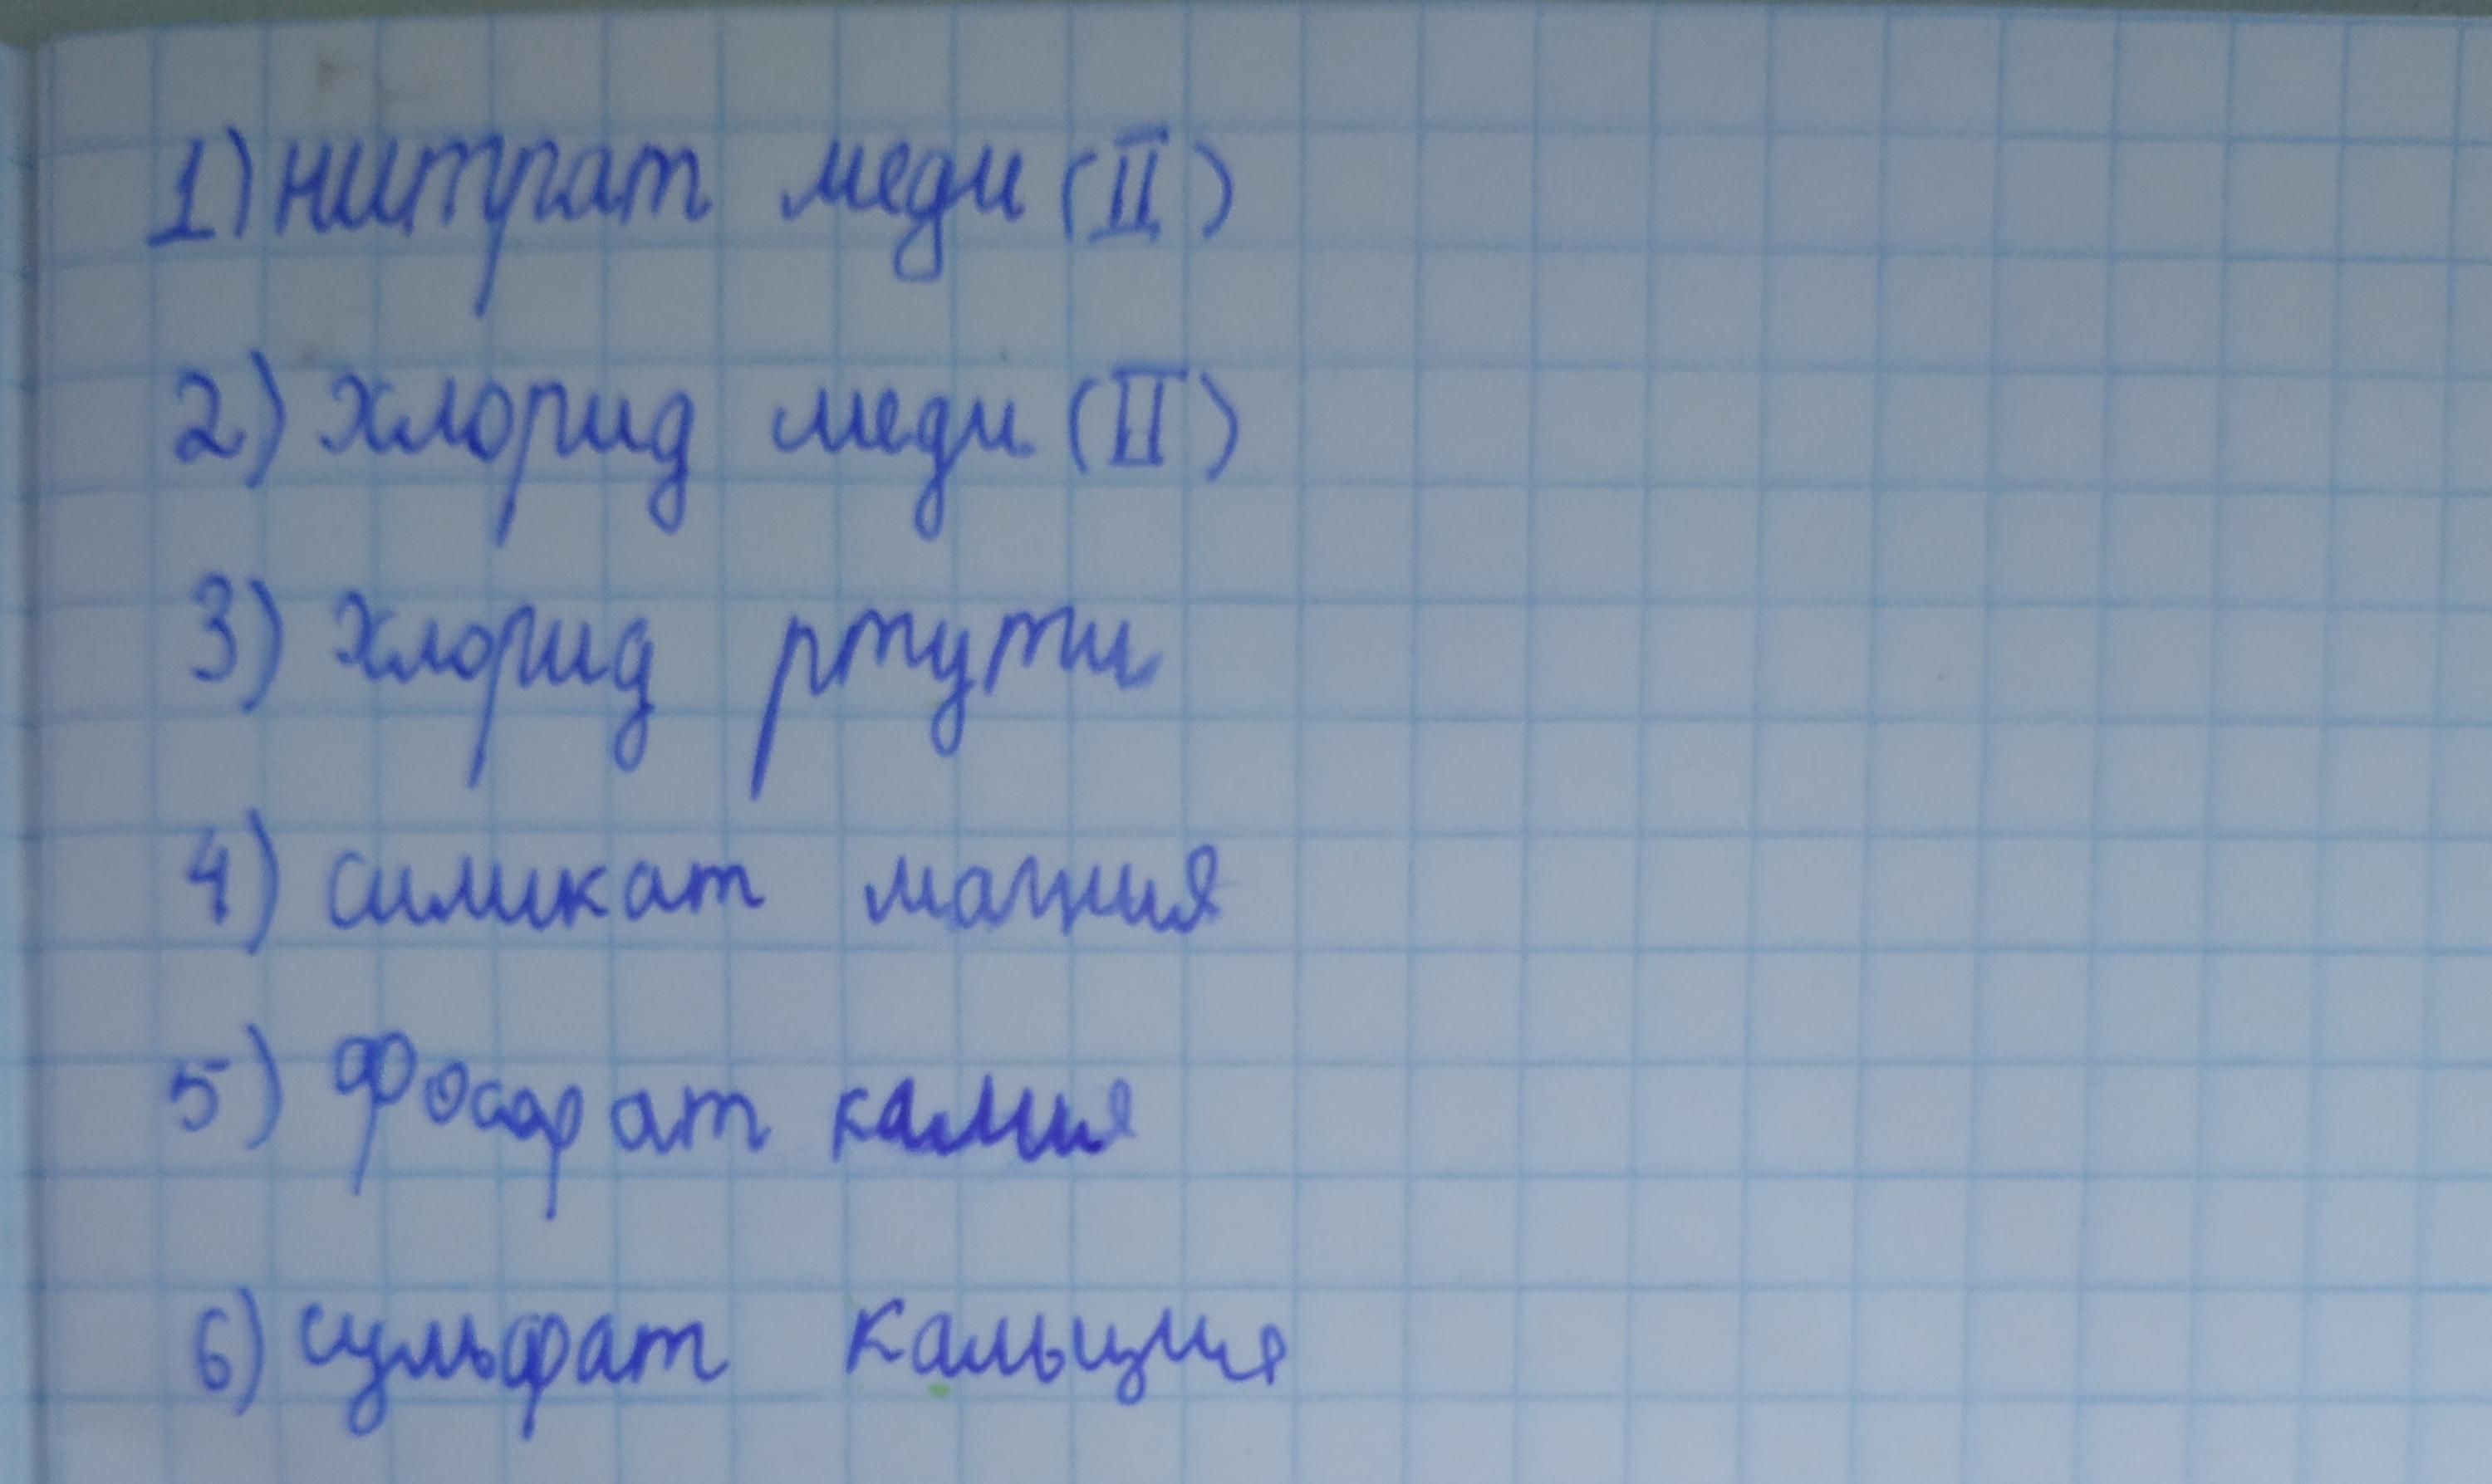 1) нитрат меди (II)
2) хлорид меди (II)
3) хлорид ртути
4) силикат магния
5) Фосфат калия
6) сульфат кальция